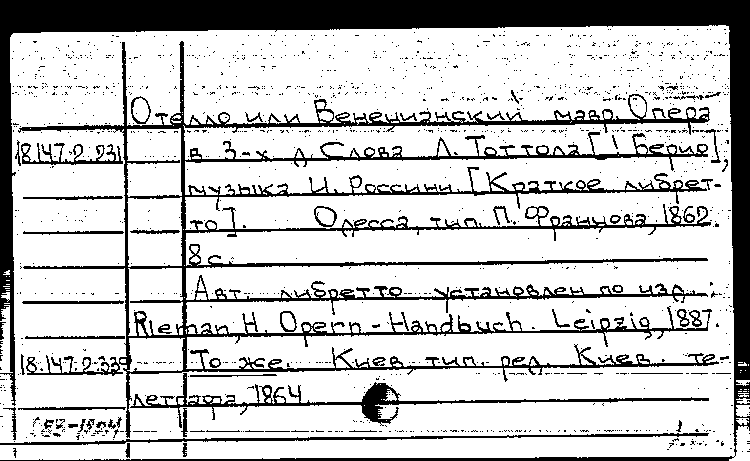 Отелло, или Венецианский мавр. Опера
18.147.2.231 в 3-х д. Слова Л. Тоттола [! Берио],
музыка И. Россини. [Краткое либрет-
то]. Одесса, тип. П. Францова, 1862.
8 с.
Авт. либретто установлен по изд.:
Rieman, H. Opern-Handbuch. Leipzig, 1887.
18.147.2.339. То же. Киев, тип. ред. Киев. те-
леграфа, 1864.